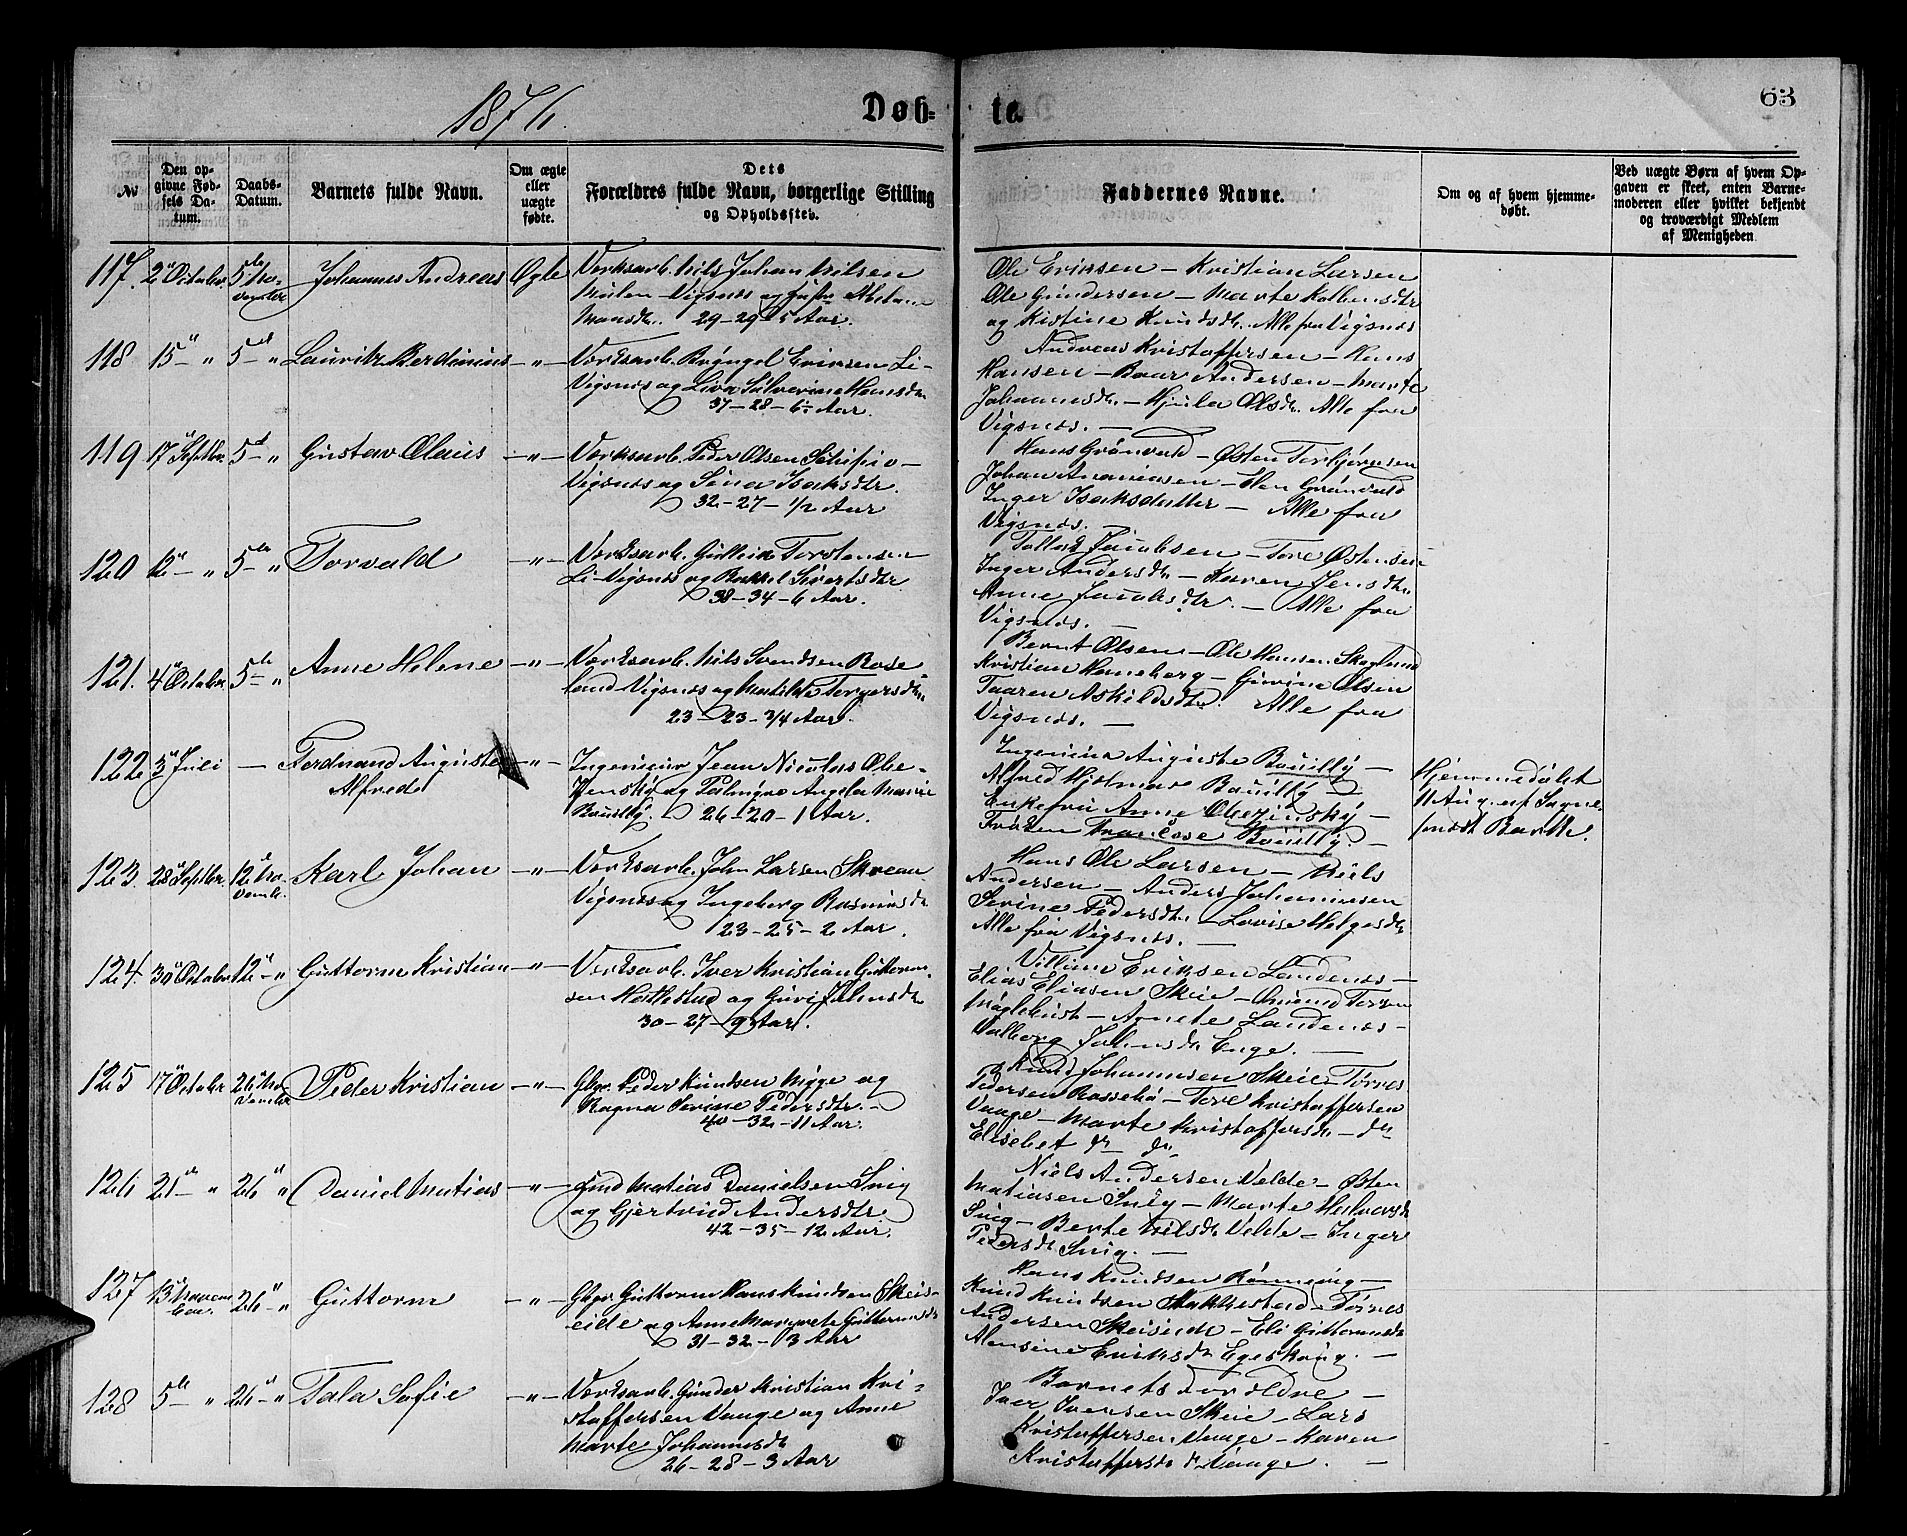 1876.
Døb-
te.
63
№
Den op-
givne Fød-
sels Da-
tum.
Daabs-
Datum.
Barnets fulde Navn.
Om ægte
eller
uægte
fødte.
Dets
Forældres fulde Navn, borgerlige Stilling
og Opholdssted.
Faddernes Navne.
Om og af hvem hjemme-
døbt.
Ved uægte Børn af hvem Op-
gaven er skeet, enten Barne-
moderen eller hvilket bekjendt
og troværdigt Medlem
af Menigheden
117. 2 October 5te No-
vember
Johannes Andreas Ægte
Værksarb. Nils Johan Nilsen
Mulen-Vigsnes og Hustr
Monsdtr. 29-29-5 Aar.
Ole Eriksen - Kristian Larsen
Ole Gundersen - Marte
og Kistine Knudsdtr. Alle fra Vigsnes
118 15 " 5 - "
Lauritz Berdinius - " -
Værksarb. Brøngel Eriksen Li-
Vigsnes og Liva Silverine Hansdtr
37-28-6 Aar.
Andreas Kristoffersen - Hans
Hansen - Baar Andersen - Marte
Johannsdtr. - Olsdtr. Alle fra
Vigsnes. -
119 17 Septbr. 5 - "
Gustav Olaus - " -
Værksarb. Peder Olsen
Vigsnes og Sina Isaksdtr.
32-27-1/2 Aar
Hans Grønvald - Østen Torbjørnsen
Johan - Elen Grønvald
Inger Isaksdatter - Alle fra
Vigsnes.
120 12 - " 5 - "
Torvald - " -
Værksarb. Gulleik Torstensen
Li-Vigsnes og Rakkel Sivertsdtr.
38-34-6 Aar.
Tollak Jacobsen - Tore Østensen
Inger Andersdtr - Karen Jensdtr.
Anne Jacobsdtr. - Alle fra
Vigsnes. -
121. 4 October 5 - "
Anne Helene - " -
Værksarb. Nils Svendsen Rose-
land-Vigsnes og Matilde Torgersdtr.
23-23-3/4 Aar.
Bernt Olsen - Ole Hansen Skoglund
Kristian Haneberg - Gurine Olsen
Taaren Askildsdtr. Alle fra
Vigsnes. -
122 5 Juli -
Ferdinand Auguste - " -
Alfred
Ingenieur Jean Nicolas Obe-
zinsky og Palmyre Angela Marie
Bouilly. 26-20-1 Aar.
Ingenieur Auguste Bouilly -
Alfred Hjelmar Bouilly -
Enkefru Anne Obezinsky -
Frøken Francoise Bouilly. -
Hjemmedøbt
11 Aug. af Sogne-
præst
123. 28 Septbr. 12 No-
vembr.
Karl Johan - " -
Værksarb. John Larsen
Vigsnes og Ingeborg Rasmusdtr
23-25-2 Aar.
Hans Ole Larsen - Niels
Andersen - Anders Johannesen
Serine Pedersdtr. - Lovise Helgesdtr
Alle fra Vigsnes. -
124. 30 October 12 - "
Guttorm Kristian - " -
Værksarb. Iver Kristian Guttorm-
sen Hettestad og Guri Johnsdtr
30-27-9 Aar.
Villum Eriksen Landenes -
Elias Eliasen Skeie - Omund
- Agnete Landenes -
Valborg Johnsdtr Enge. -
125 17 October 26 No-
vember
Peder Kristian - " -
Gbr. Peder Knudsen Mygge og
Ragna Serine Pedersdtr. -
40-32-11 Aar.
Knud Johannesen Skeie - Tørres
Pedersen Rossebø - Tore Kristoffersen
Vaage - Marte Kristoffersdtr - do
Elisebet do do
126 21 - " 26 "
Daniel Matias - " -
Gmd Matias Danielsen Snig
og Gjertrud Andersdtr
42-35-12 Aar.
Niels Andersen Velde - Østen
Matiasen Snig - Marte Halvorsdtr
Snig - Berte Nilsdtr Velde - Inger
Pedersdtr Snig. -
127 13 Novem-
ber. 26 - "
Guttorm - " -
Gbr. Guttorm Hans Knudsen Skeis-
eide og Anne Margrete Guttormsdtr
31-32-13 Aar
Hans Knudsen Rønnevig -
Knud Knudsen Stakkestad - Tørres
Andersen Skeiseide - Eli Guttormsdtr
Alensine Eriksdtr Egeskoug. -
128 5te " 26 - "
Tala Sofie - " -
Værksarb. Gunder Kristian Kri-
stoffersen Vaage og Anne
Marte Johannesdtr
26-28-3 Aar
Barnets Forældre -
Iver Iversen Skeie - Lars
Kristoffersen Vaage - Karen
Kristoffersdtr Vaage. -